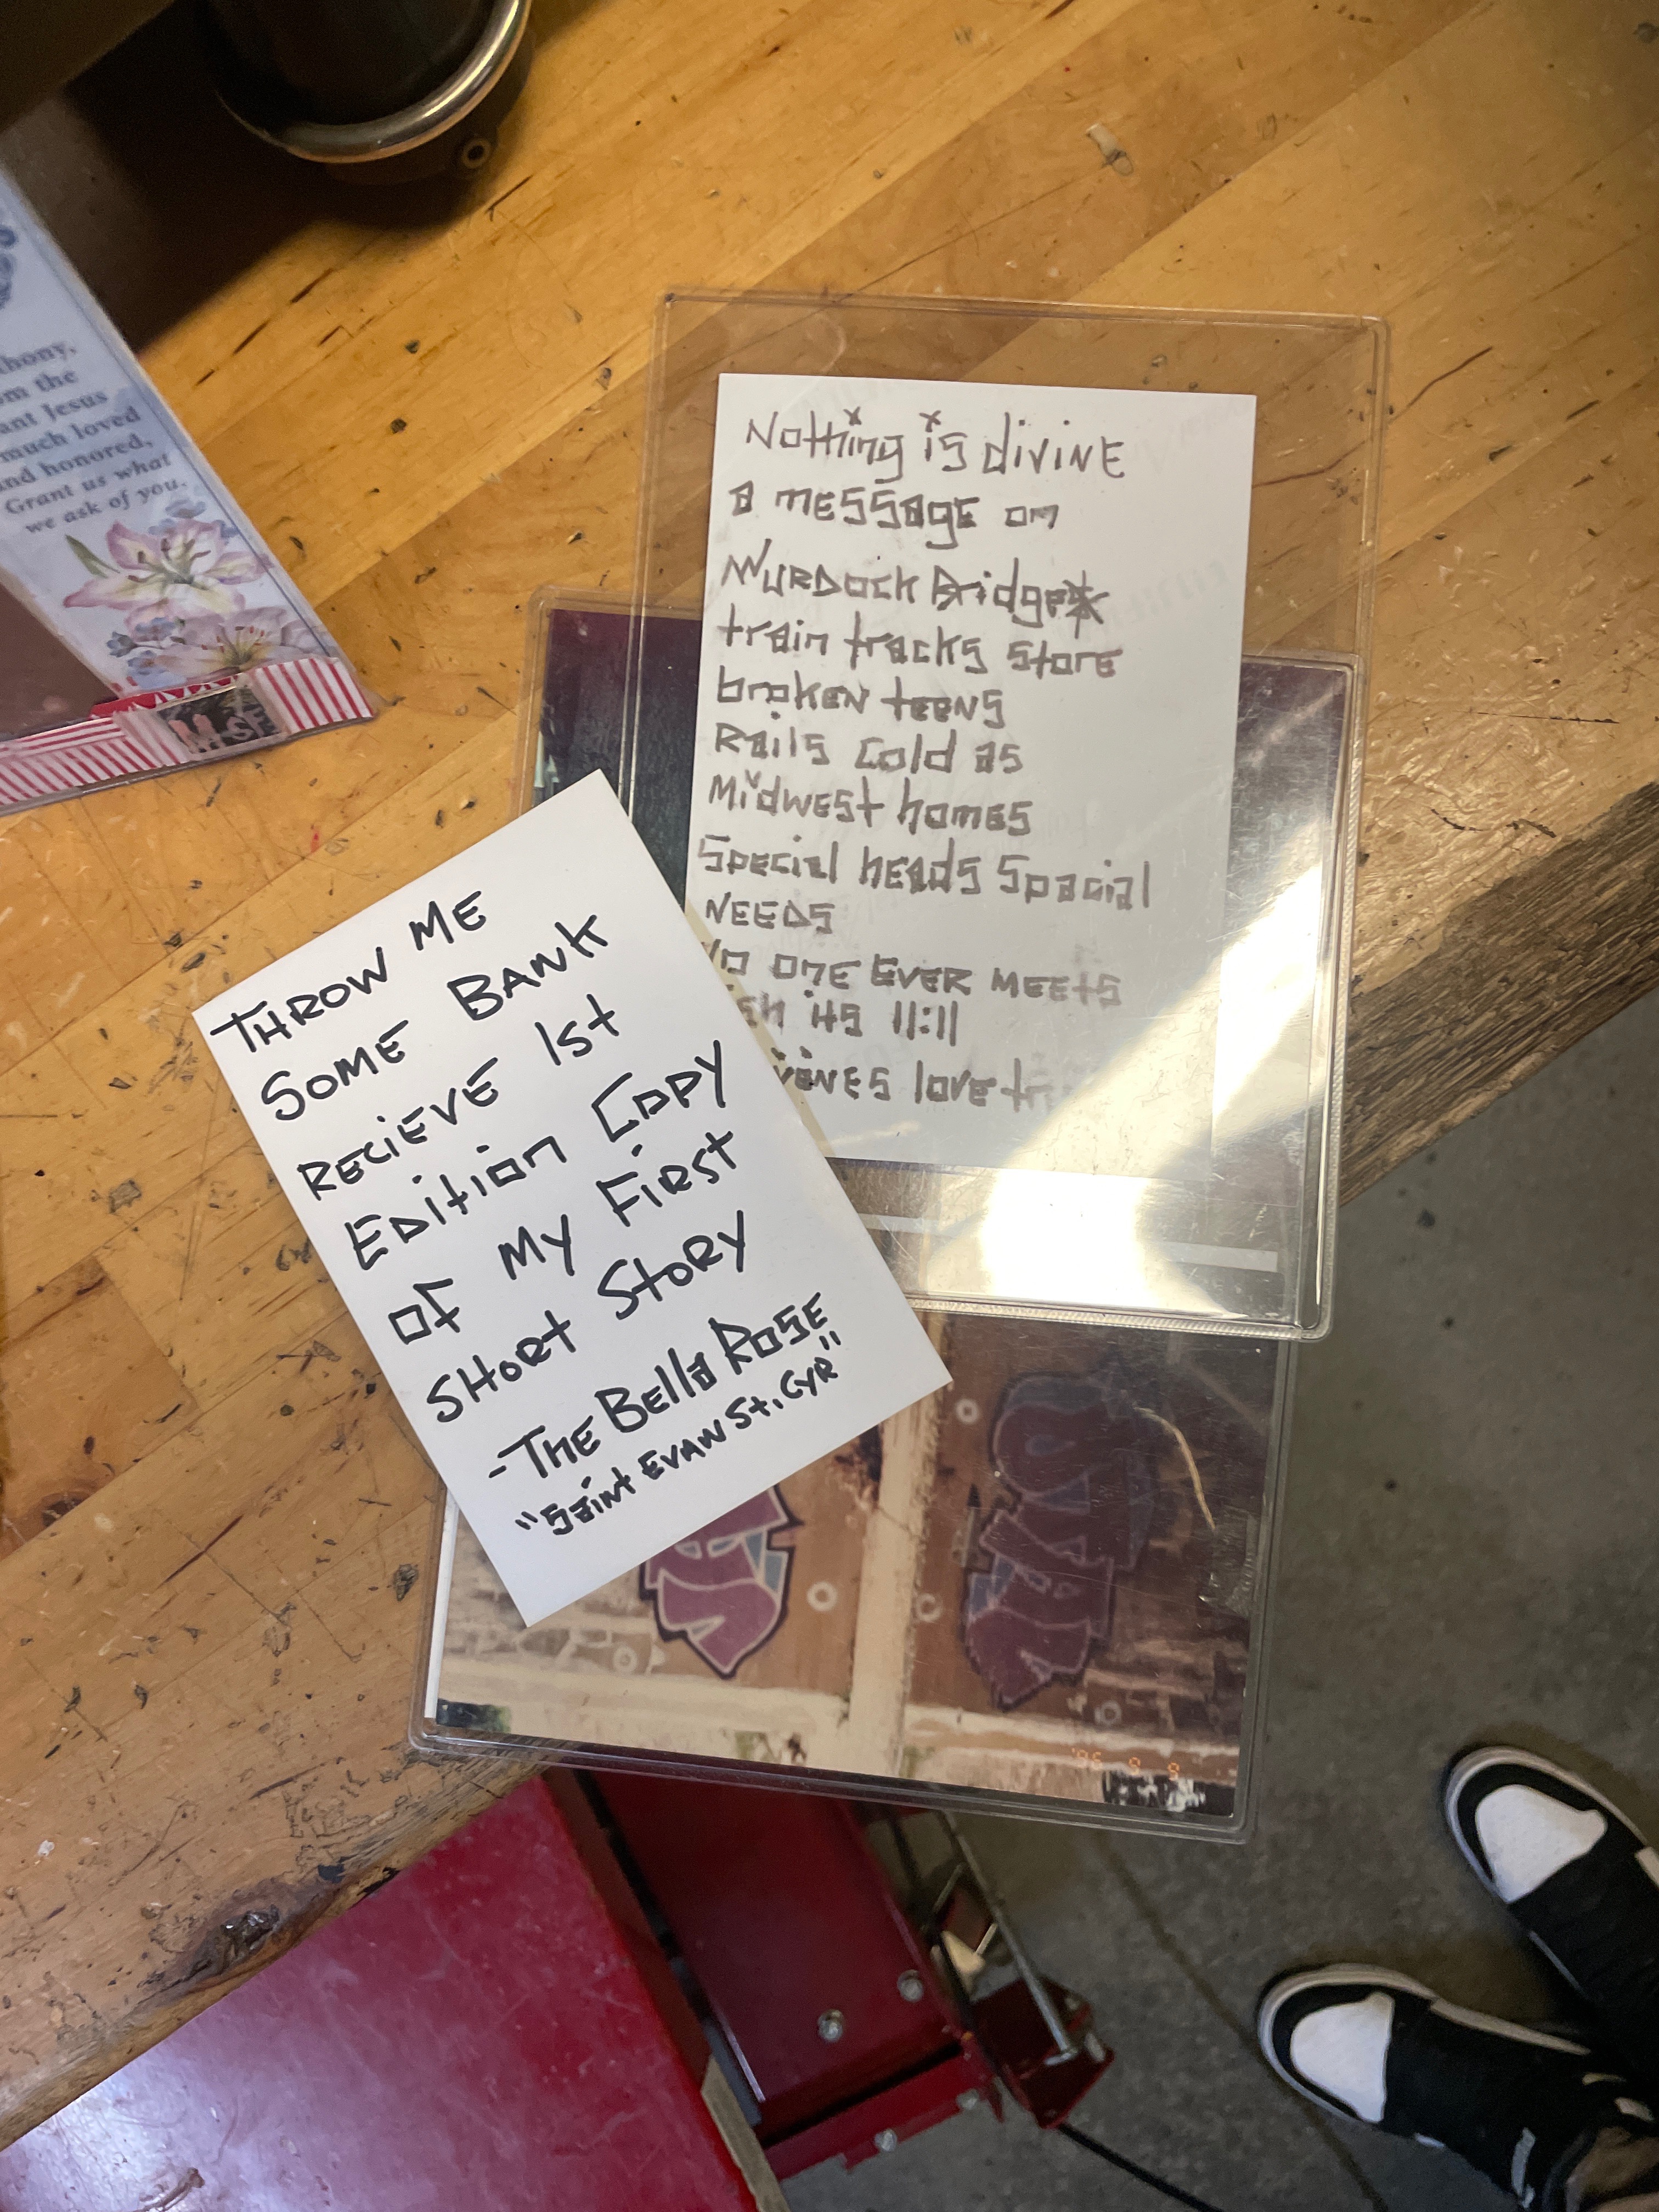 thony,
om the
ant Jesus
much loved
and honored,
Grant us what
we ask of you.
Nothing is divine
a message on
Murdock Bridge
train tracks store
broken teens
Rails cold as
Midwest homes
Special heads Spacial
NEEDS
no one EVER MEEts
its 11:11
love
THROW ME
SOME BANK
RECIEVE 1st
Edition Copy
of My First
Short Story
-The Bella Rose
"Saint Evan St. Cyr"